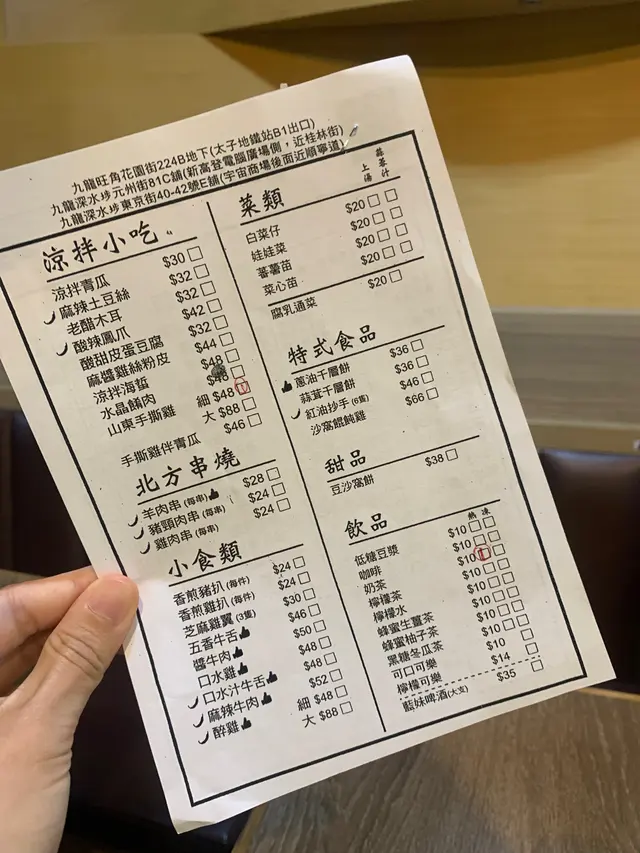 九龍旺角花園街224B地下(太子地鐵站B1出口)
九龍深水埗元州街81C舖(新高登電腦廣場側，近桂林街)
九龍深水埗東京街40-42號E舖(宇宙商場後面近順寧道)
涼拌小吃
涼拌青瓜 $30
麻辣土豆絲 $32
老醋木耳 $32
酸辣鳳爪 $42
酸甜皮蛋豆腐 $32
麻醬雞絲粉皮 $44
涼拌海蜇 $48
水晶餚肉 $48
山東手撕雞 細 $48
大 $88
手撕雞伴青瓜 $46
北方串燒
羊肉串 (每串) $28
豬頸肉串 (每串) $24
雞肉串 (每串) $24
小食類
香煎豬扒 (每件) $24
香煎雞扒 (每件) $24
芝麻雞翼 (3隻) $30
五香牛舌 $46
醬牛肉 $50
口水雞 $48
口水汁牛舌 $48
麻辣牛肉 $52
醉雞 細 $48
大 $88
菜類
上湯 蒜蓉汁
白菜仔 $20
娃娃菜 $20
蕃薯苗 $20
菜心苗 $20
腐乳通菜 $20
特式食品
蔥油千層餅 $36
蒜茸千層餅 $36
紅油抄手 (6隻) $46
沙窩餛飩雞 $66
甜品
豆沙窩餅 $38
飲品
熱 凍
低糖豆漿 $10
咖啡 $10
奶茶 $10
檸檬茶 $10
檸檬水 $10
蜂蜜生薑茶 $10
蜂蜜柚子茶 $10
黑糖冬瓜茶 $10
可口可樂 $10
檸檬可樂 $14
藍妹啤酒(大支) $35